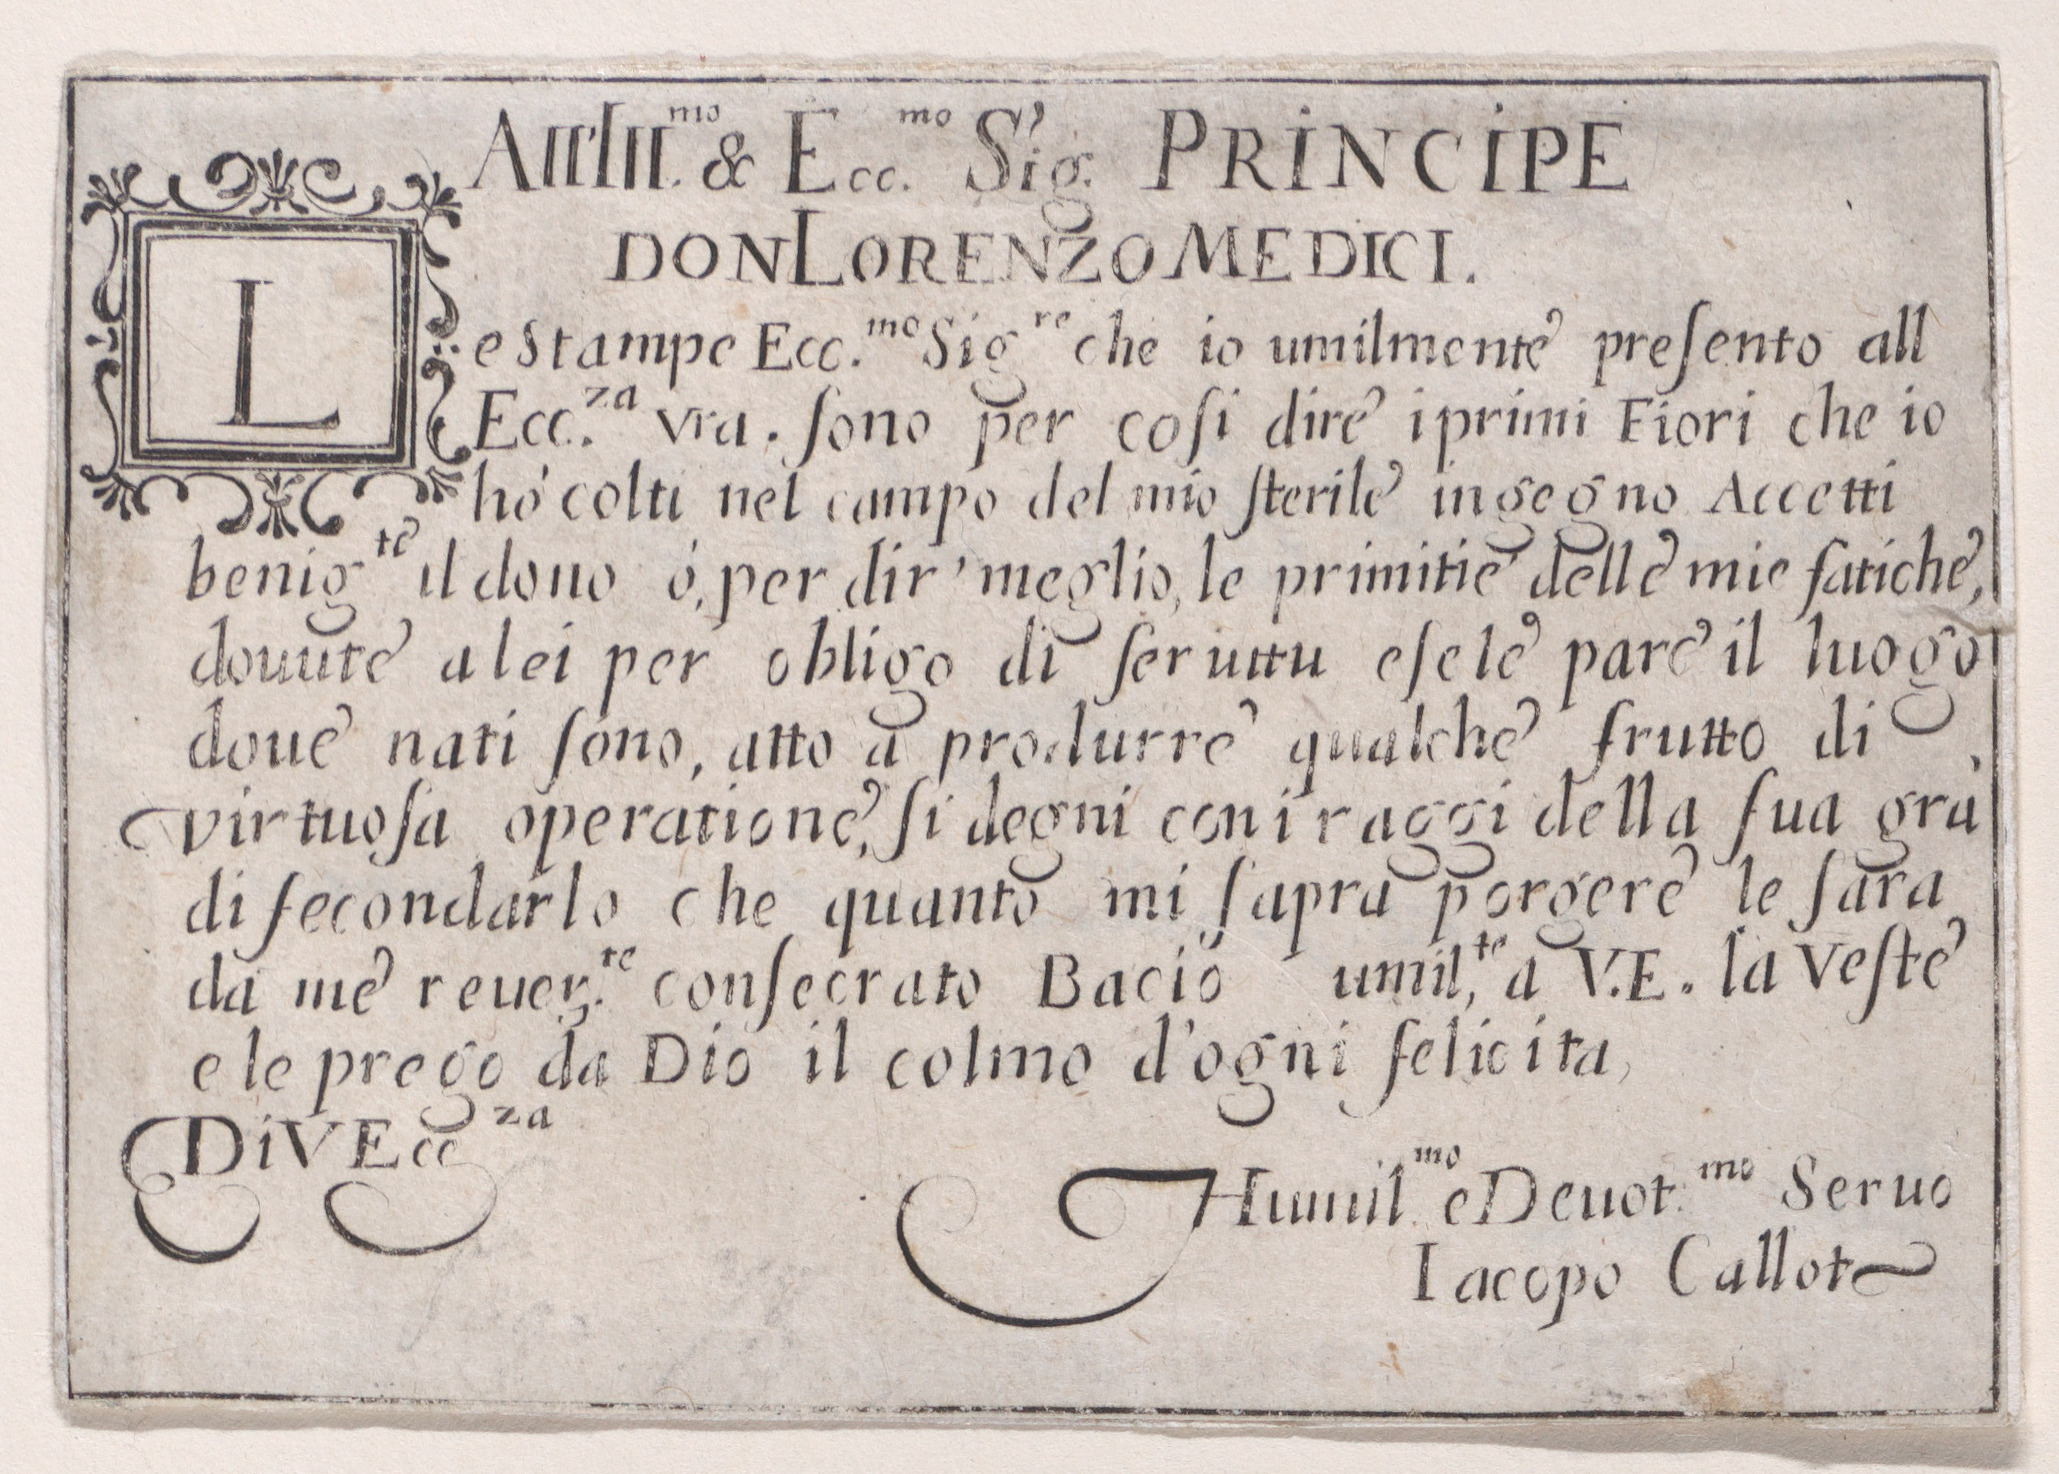 All'Ill.mo & Ecc.mo Sig. PRINCIPE
DON LORENZO MEDICI.
Le stampe Ecc.mo Sigre che io umilmente preſento all
Ecc.za vra. ſono per coſi dire i primi Fiori che io
hó colti nel campo del mio ſterile ingegno Accetti
benigte il dono ó, per dir' meglio, le primitie delle mie fatiche,
douute a lei per obligo di ſeruittu e ſe le pare il luogo
doue nati ſono, atto a produrre qualche frutto di
virtuoſa operatione, ſi degni con i raggi della ſua gra
di fecondarlo che quanto mi ſapra porgere le ſara
da me reuer.te conſecrato Bacio umil,te a V.E. la veſte
e le prego da Dio il colmo d'ogni felicita,
Di V Ecc za
Humil.mo e Deuot.mo Seruo
Iacopo Callot